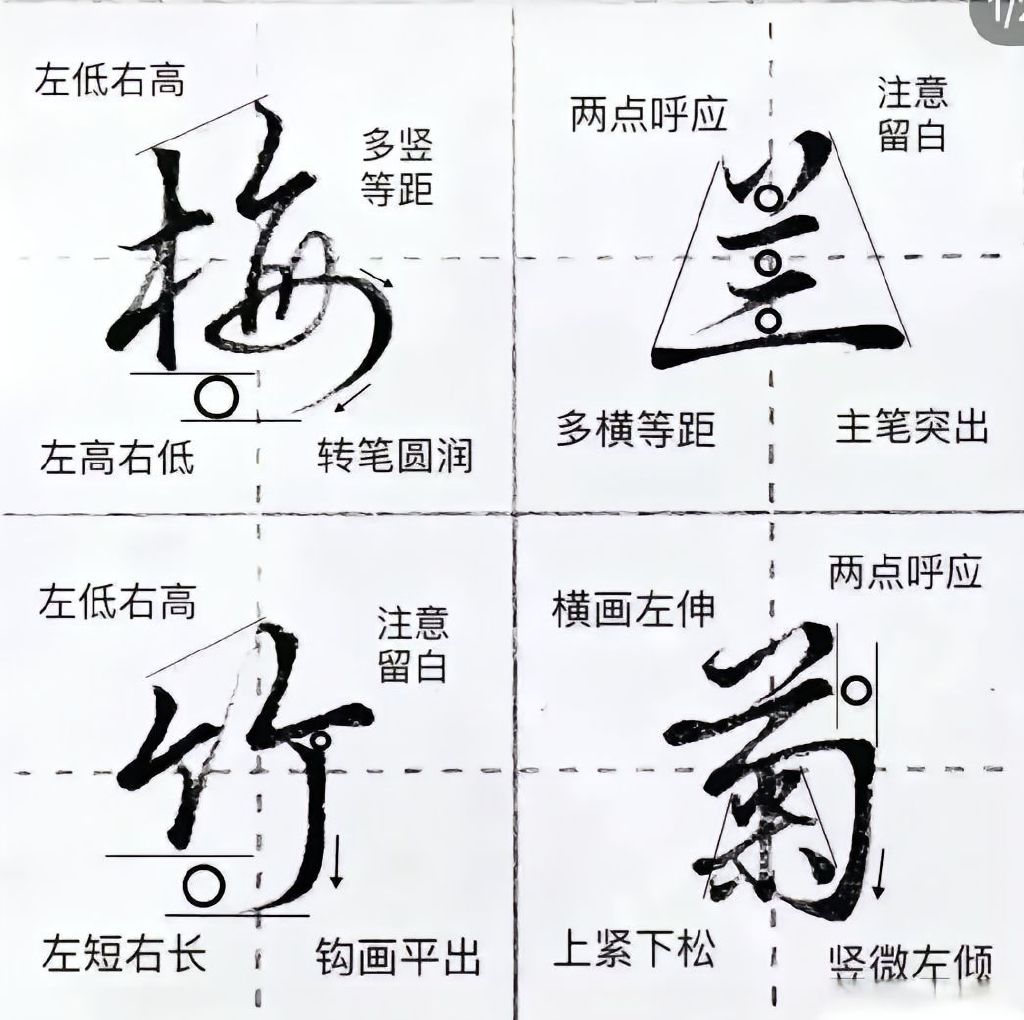 1/2
左低右高
多竖
等距
梅
左高右低
转笔圆润
两点呼应
注意
留白
兰
多横等距
主笔突出
左低右高
注意
留白
竹
左短右长
钩画平出
横画左伸
两点呼应
菊
上紧下松
竖微左倾